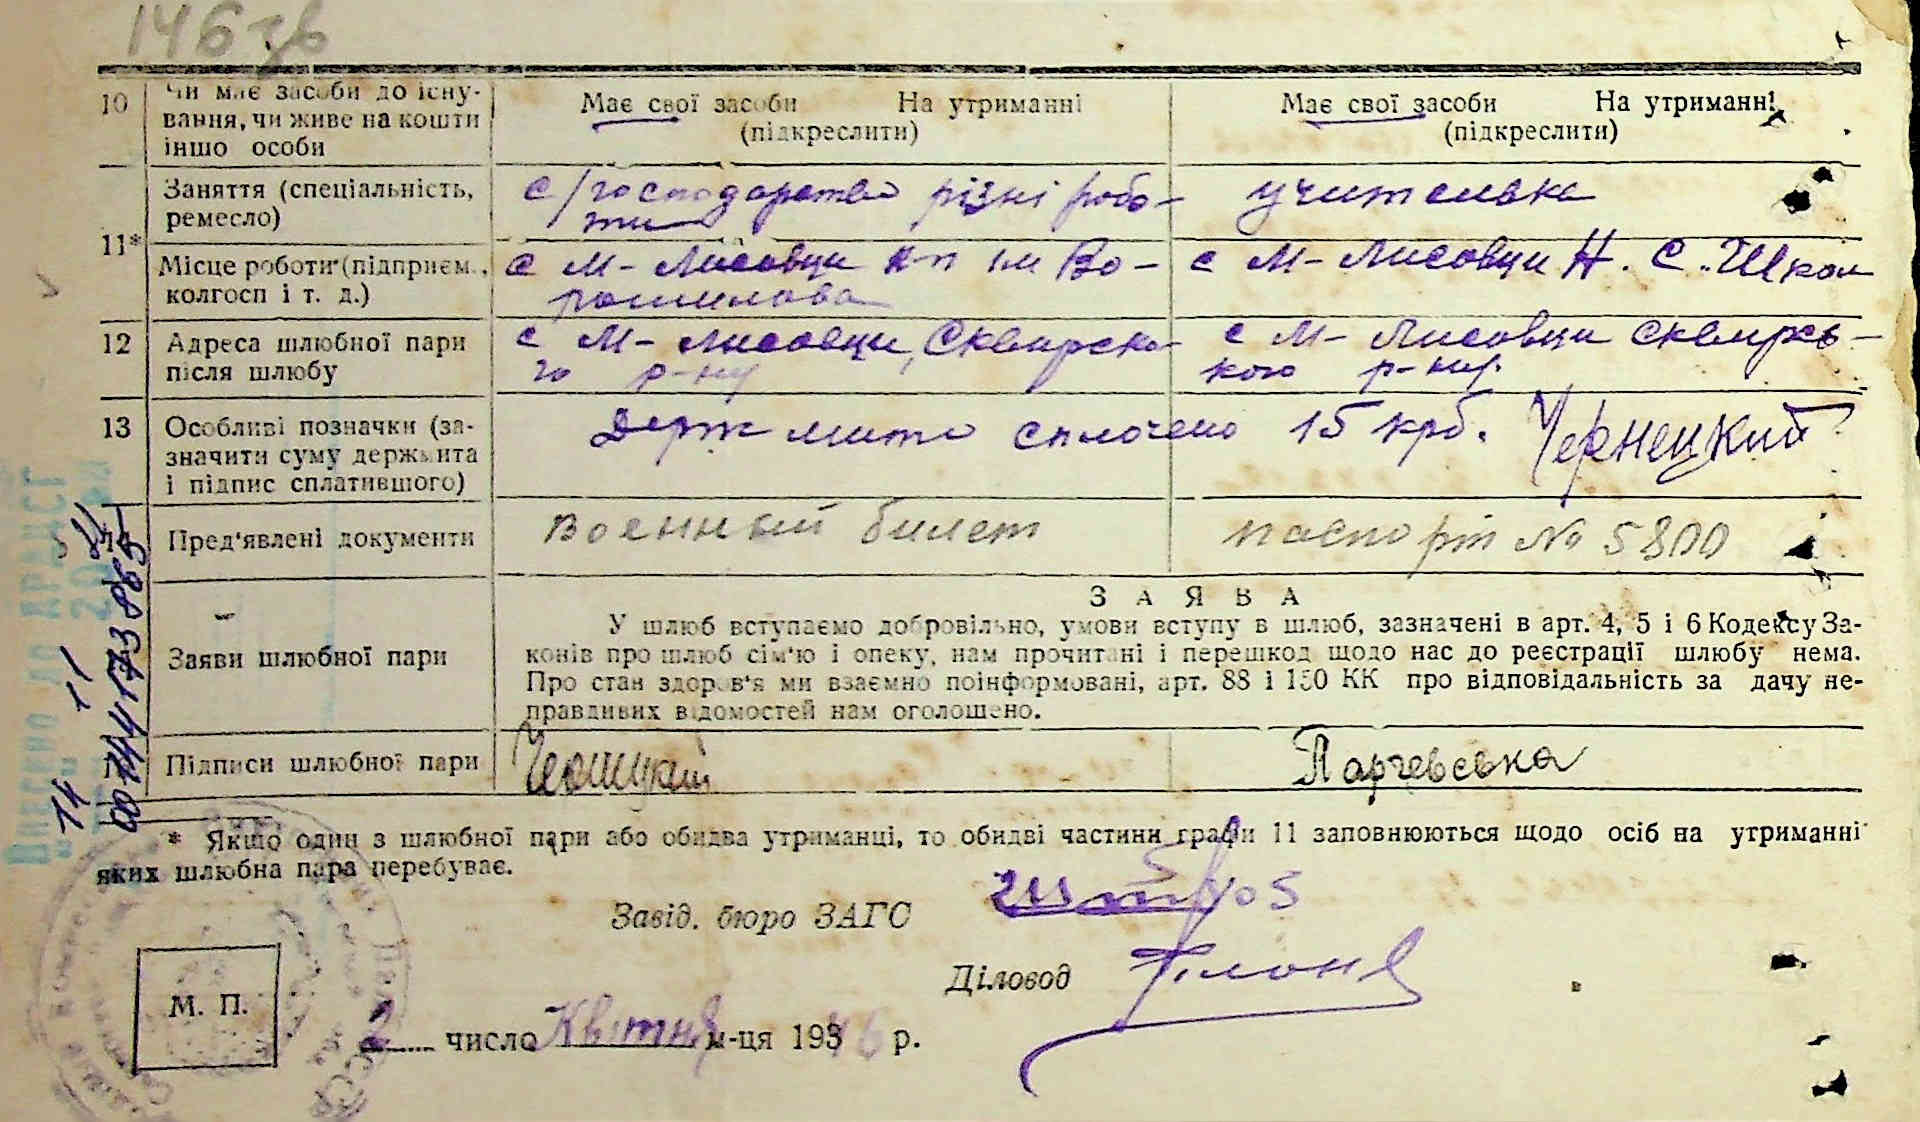 146 зв
10 Чи має засоби до існу-
вання, чи живе на кошти
іншо особи
Має свої засоби На утриманні
(підкреслити)
Має свої засоби На утриманні
(підкреслити)
11*
Заняття (спеціальність,
ремесло)
с/господарство різні робо-
ти
учителька
Місце роботи (підприєм.,
колгосп і т. д.)
с М-Лисовци к-п ім Во-
рошилова
с М-Лисовци Н. С. Школ
12 Адреса шлюбної пари
після шлюбу
с М-Лисовци, Сквирско-
го р-ну
с М-Лисовци Сквирсь-
кого р-ну.
13 Особливі позначки (за-
значити суму держмита
і підпис сплатившого)
Держ мито сплочено 15 крб. Чернецкий
Пред'явлені документи
Военный билет
паспорт № 5800
Заяви шлюбної пари
ЗАЯВА
У шлюб вступаємо добровільно, умови вступу в шлюб, зазначені в арт. 4, 5 і 6 Кодексу За-
конів про шлюб сім'ю і опеку, нам прочитані і перешкод щодо нас до реєстрації шлюбу нема.
Про стан здоров'я ми взаємно поінформовані, арт. 88 і 150 КК про відповідальність за дачу не-
правдивих відомостей нам оголошено.
Підписи шлюбної пари
Паргевська
* Якщо один з шлюбної пари або обидва утриманці, то обидві частини графи 11 заповнюються щодо осіб на утриманні
яких шлюбна пара перебуває.
Завід. бюро ЗАГС
Діловод
М. П.
2 число Квітня м-ця 1946 р.
14 11
00144173865